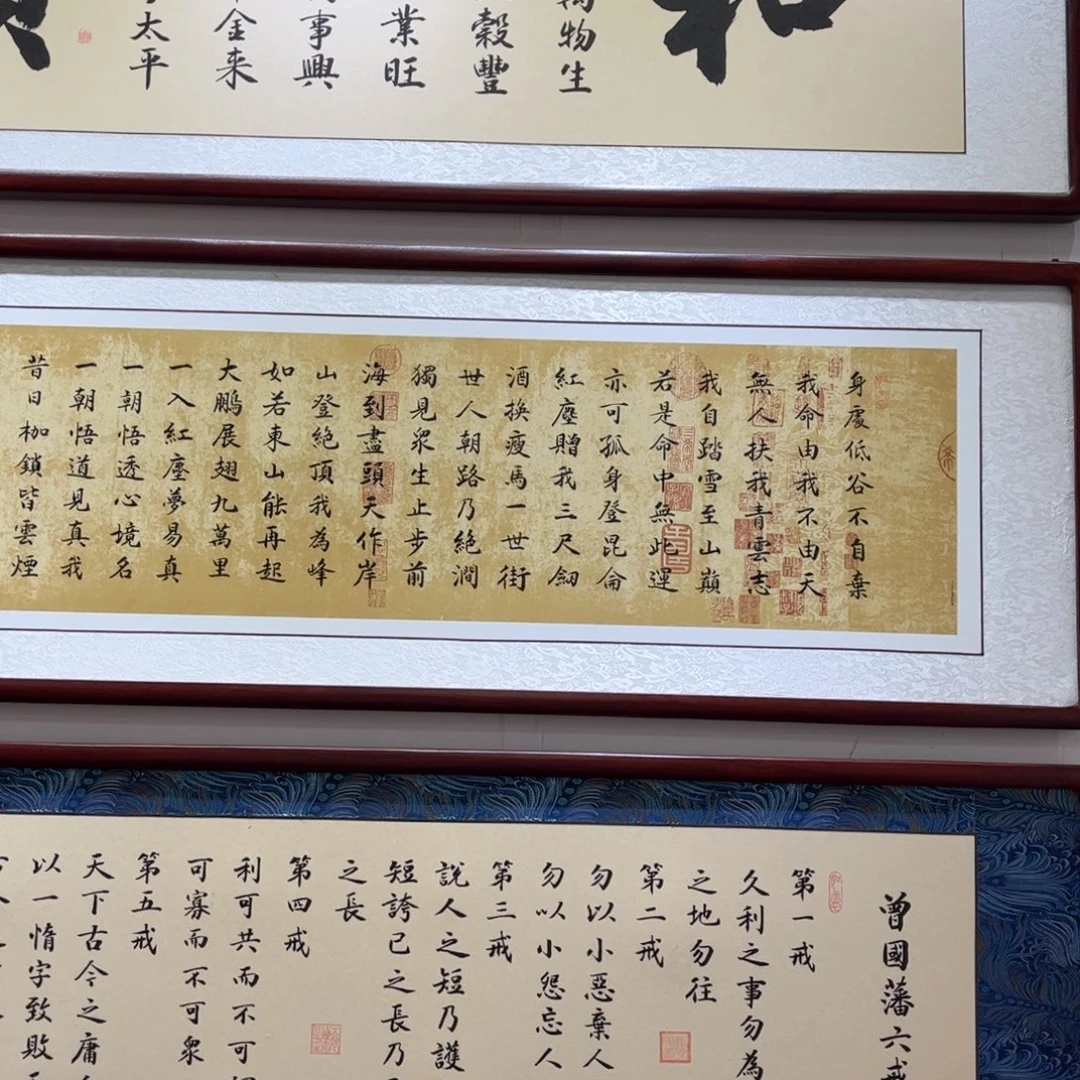 和
萬物生
穀豐
業旺
事興
金来
太平
身處低谷不自棄
我命由我不由天
無人扶我青雲志
我自踏雪至山巔
若是命中無此運
亦可孤身登昆侖
紅塵贈我三尺劍
酒換瘦馬一世街
世人朝路乃絕澗
獨見眾生止步前
海到盡頭天作岸
山登絕頂我為峰
如若東山能再起
大鵬展翅九萬里
一入紅塵夢易真
一朝悟透心境名
一朝悟道見真我
昔日枷鎖皆雲煙
曾國藩六戒
第一戒
久利之事勿為
之地勿往
第二戒
勿以小惡棄人
勿以小怨忘人
第三戒
說人之短乃護
短誇己之長乃
之長
第四戒
利可共而不可
可寡而不可眾
第五戒
天下古今之庸
以一惰字致敗